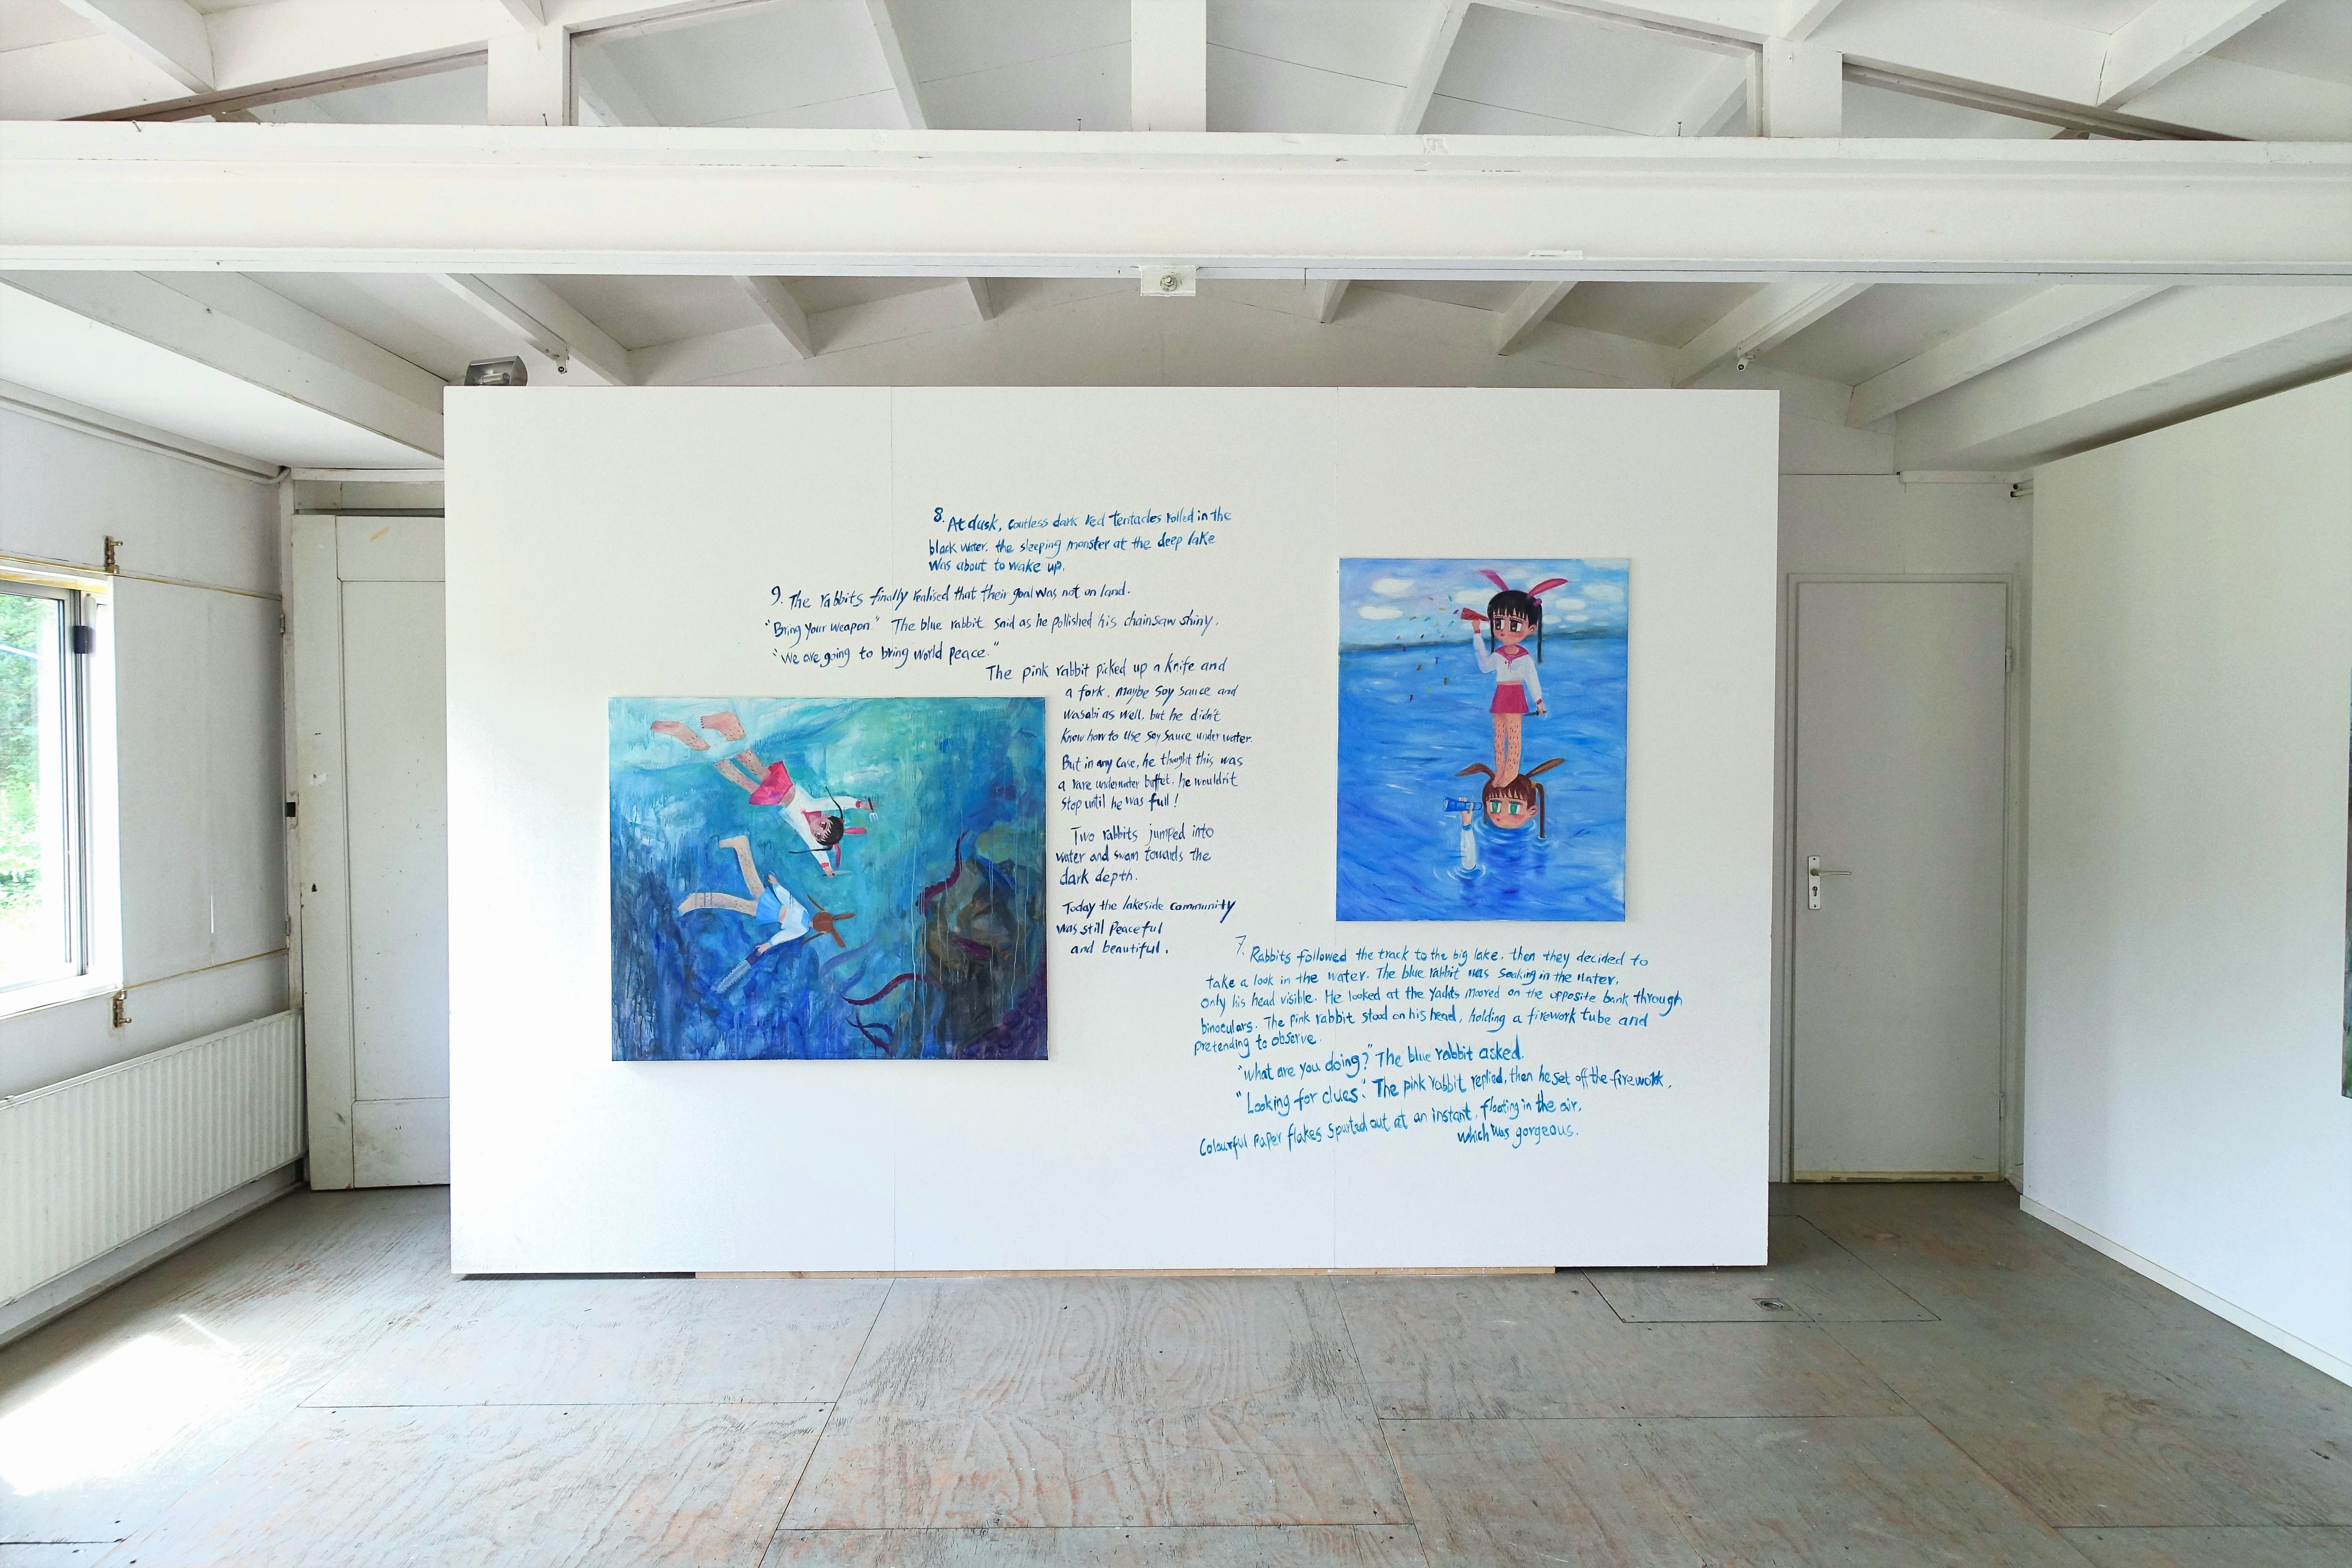 8. At dusk, coutless dark red tentacles rolled in the
black water. the sleeping monster at the deep lake
was about to wake up.
9. The rabbits finally realised that their goal was not on land.
"Bring your weapon." The blue rabbit said as he pollished his chainsaw shiny.
"We are going to bring world peace."
The pink rabbit picked up a knife and
a fork, maybe soy sauce and
wasabi as well, but he didn't
know how to use soy sauce under water.
But in any case, he thought this was
a rare underwater buffet, he wouldn't
stop until he was full!
Two rabbits jumped into
water and swam towards the
dark depth.
Today the lakeside community
was still peaceful
and beautiful.
7. Rabbits followed the track to the big lake, then they decided to
take a look in the water. The blue rabbit was soaking in the water,
only his head visible. He looked at the yachts moored on the opposite bank through
binoculars. The pink rabbit stood on his head, holding a firework tube and
pretending to observe.
"what are you doing?" The blue rabbit asked.
"Looking for clues." The pink rabbit replied, then he set off the firework,
Colourful paper flakes spurted out at an instant, floating in the air,
which was gorgeous.